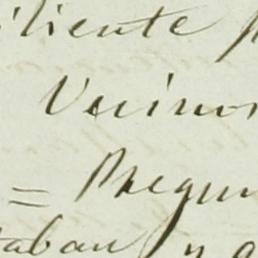 iliente p
Vecinos
= Pregun
taban y a